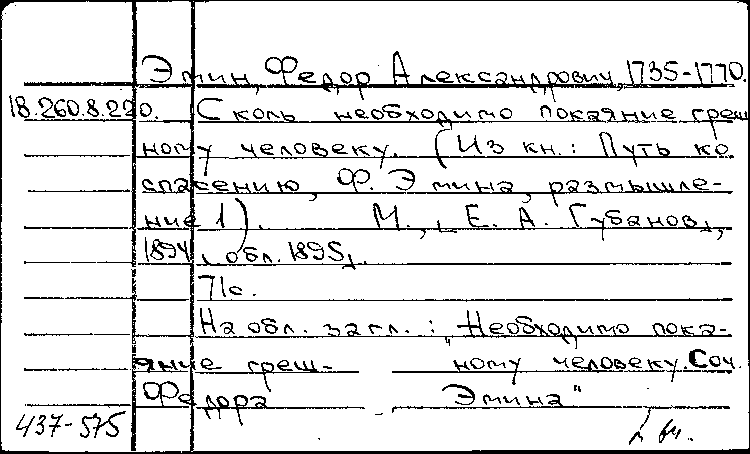 Эмин, Федор Александрович, 1735-1770.
18.260.8.220. Сколь необходимо покаяние греш
ному человеку. (Из кн.: Путь ко
спасению, Ф. Эмина, размышле-
ние 1). М., Е. А. Губанов,
1894, обл. 1895.
71с.
На обл. загл.: "Необходимо пока-
яние греш- ному человеку. Соч.
Федора Эмина"
437-575